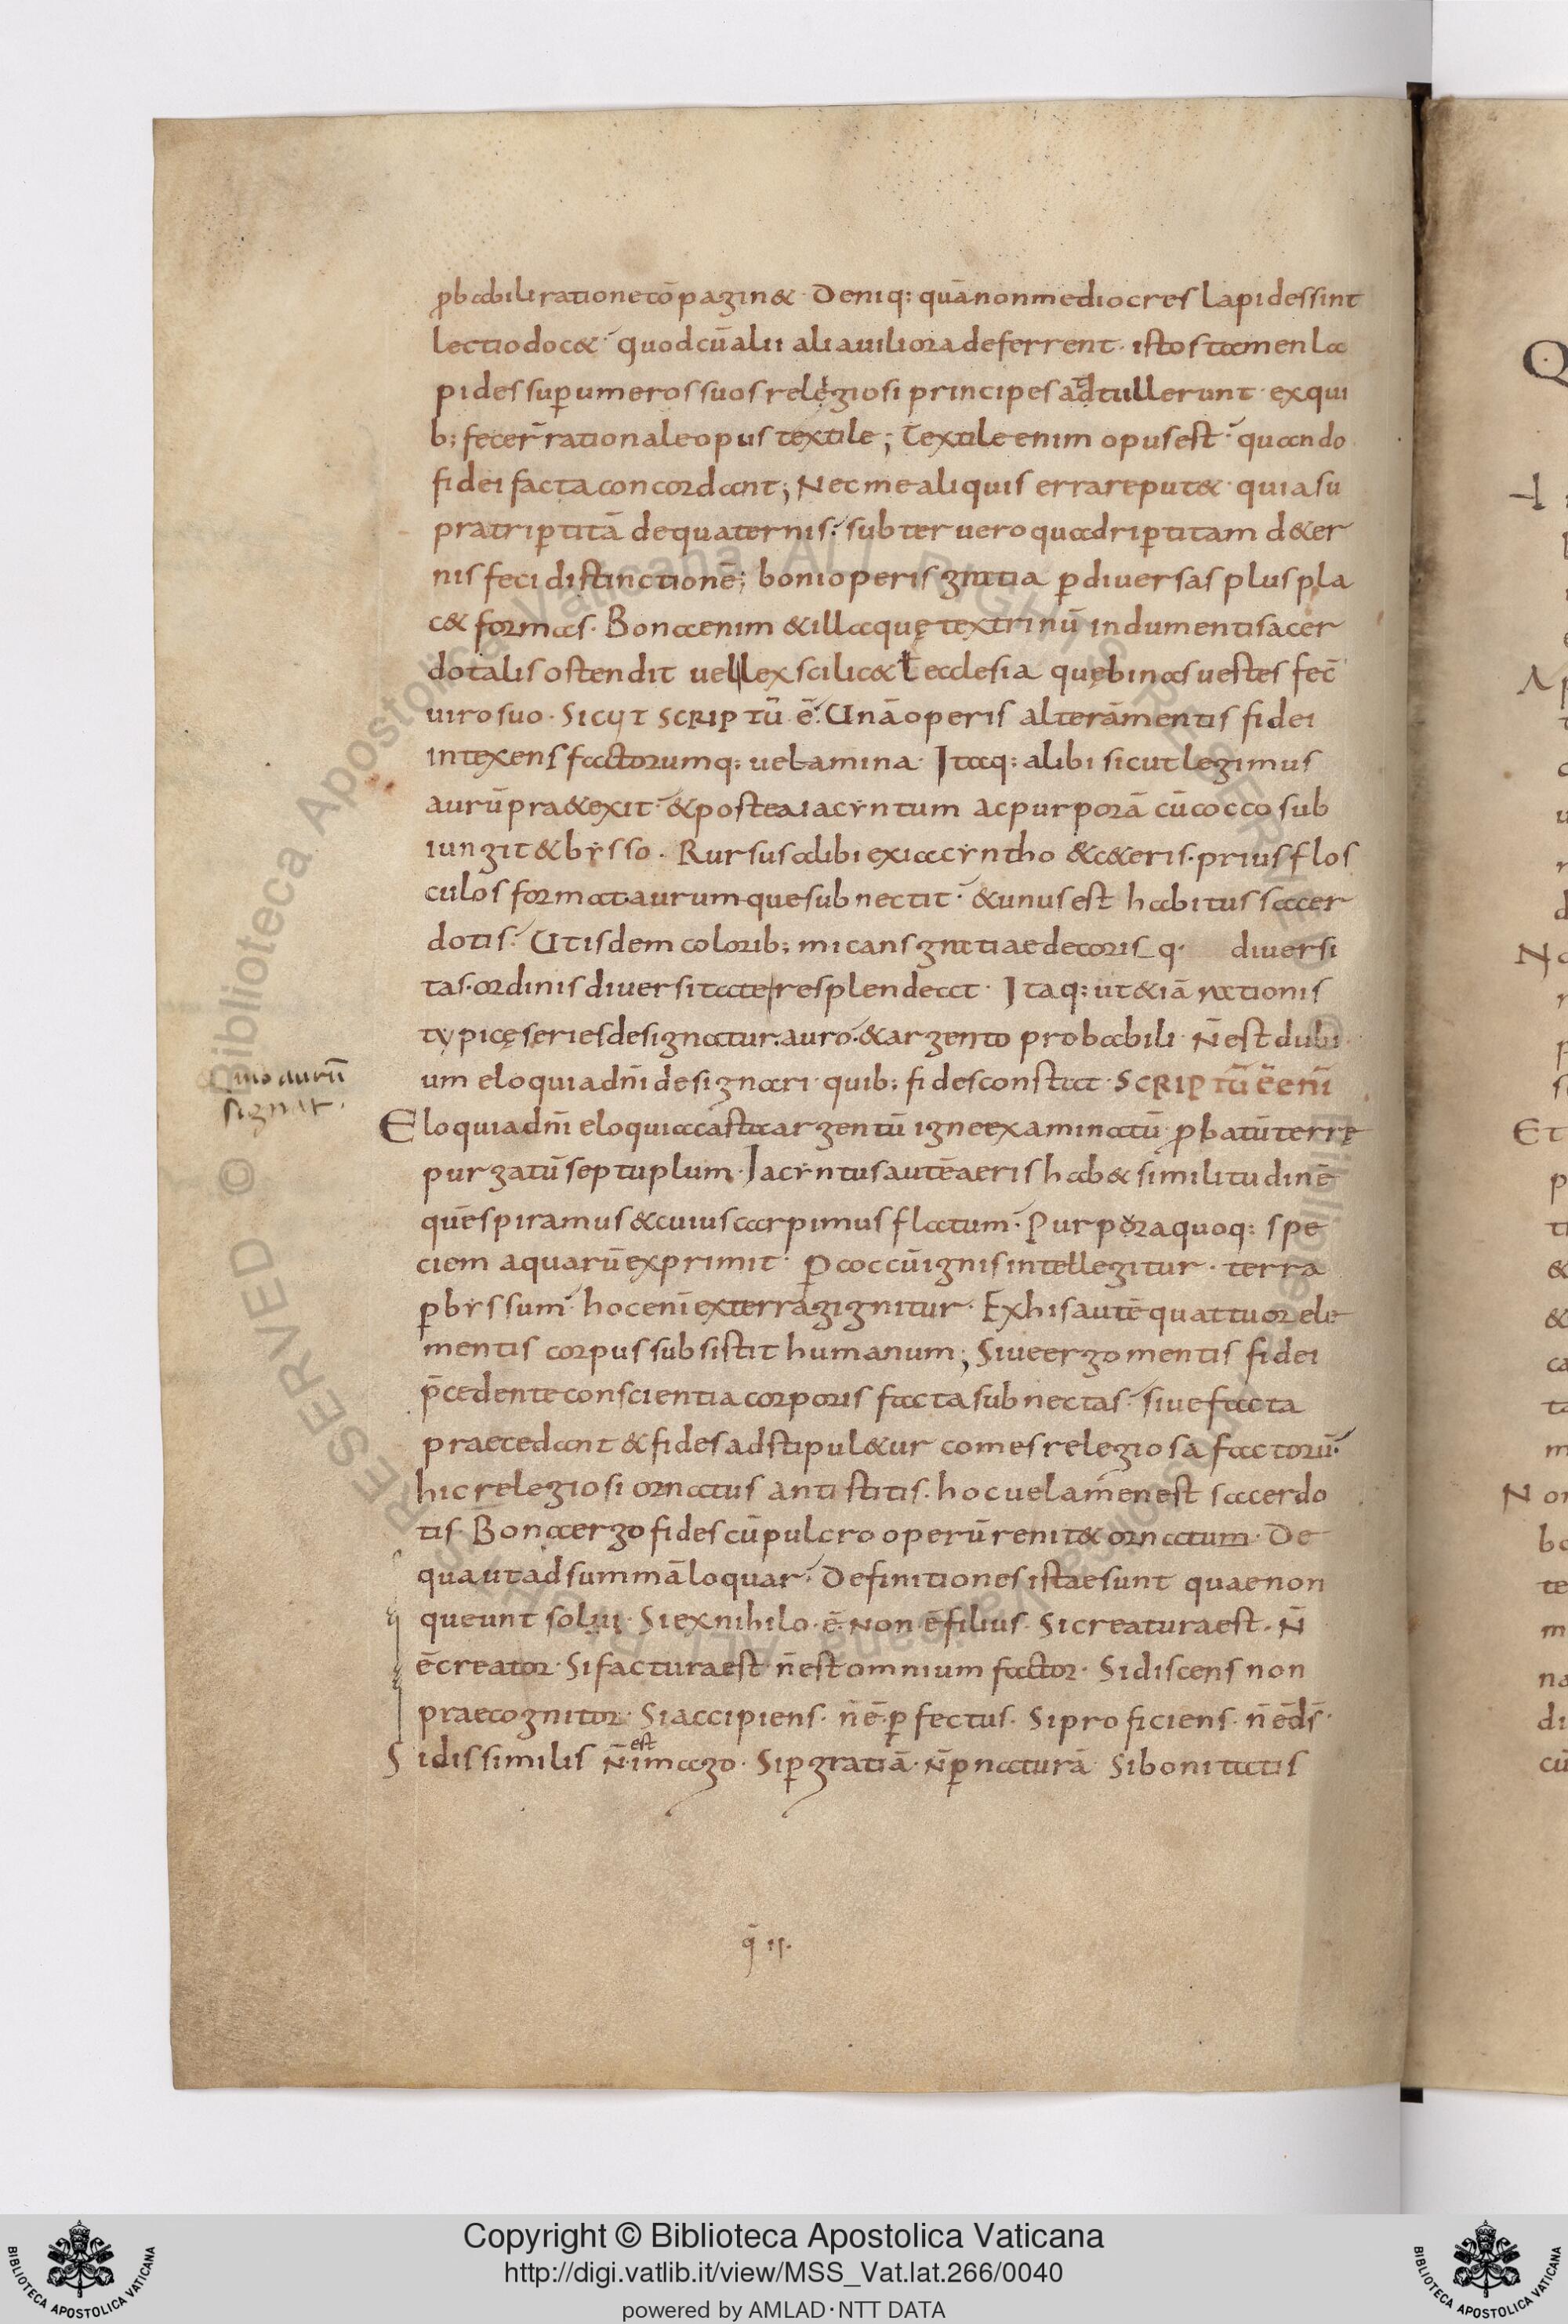 ꝓbabili ratione cōpaginet · Deniq: quā non mediocres lapides sint
lectio docet · quod cū alii alia uiliora deferrent · istos tamen la
pides suꝑ umeros suos relegiosi principes adtullerunt · ex qui
b; fecer̄ rationale opus textile; Textile enim opus est · quando
fidei facta concordant; Nec me aliquis errare putet · quia su
pra triꝑtitā de quaternis · subter uero quadriꝑtitam de ter
nis feci distinctionē; boni operis gratia ꝑ diuersas plus pla
cet formas · Bona enim & illa quę textrinū indumenti sacer
dotalis ostendit uel lex scilicet ł ecclesia quę binas uestes fec̄
uiro suo · SICUT SCRIPTŪ ē · Unā operis alterā mentis fidei
intexens factorumq: uelamina · Itaq: alibi sicut legimus
aurū praetexit · & postea iacyntum ac purporā cū cocco sub
iungit & bysso · Rursus alibi ex iacyntho & ceteris · prius flos
culos format aurumque subnectit · & unus est habitus sacer
dotis · Ut isdem colorib; micans gratiae decoris q· diuersi
tas · ordinis diuersitate resplendeat · Itaq: ut etiā rationis
typicę series designatur · auro · & argento probabili · N̄ est dubi
um eloquia dn̄i designari · quib; fides constat · SCRIPTŪ ē enī
quo aurū
signat ·
Eloquia dn̄i eloquia casta argentū igne examinatū ꝓbatū terrę
purgatū septuplum · Iacyntus autē aeris habet similitudinē
quē spiramus & cuius carpimus flatum · Purpora quoq: spe
ciem aquarū exprimit · Ꝑ coccū ignis intellegitur · terra
ꝑ byssum · hoc enī ex terra gignitur · Ex his autē quattuor ele
mentis corpus subsistit humanum; Siue ergo mentis fidei
p̄cedente conscientia corporis facta subnectas · siue facta
praecedant & fides adstipuletur comes relegiosa factorū ·
hic relegiosi ornatus antistitis · hoc uelamen est sacerdo
tis · Bona ergo fides cū pulcro operū renitet ornatum · De
qua ut ad summā loquar · Definitiones istae sunt quae non
queunt solui · Si ex nihilo · ē · non ē filius · Si creatura est · N̄
ē creator · Si factura est n̄ est omnium factor · Si discens non
praecognitor · Si accipiens · n̄ ē · ꝑfectus · Si proficiens · n̄ ē ds̄ ·
est
Si dissimilis N̄ · imago · Si ꝑ gratiā · N̄ ꝑ naturā Si bonitatis
q̄ II ·
Copyright © Biblioteca Apostolica Vaticana
http://digi.vatlib.it/view/MSS_Vat.lat.266/0040
powered by AMLAD·NTT DATA